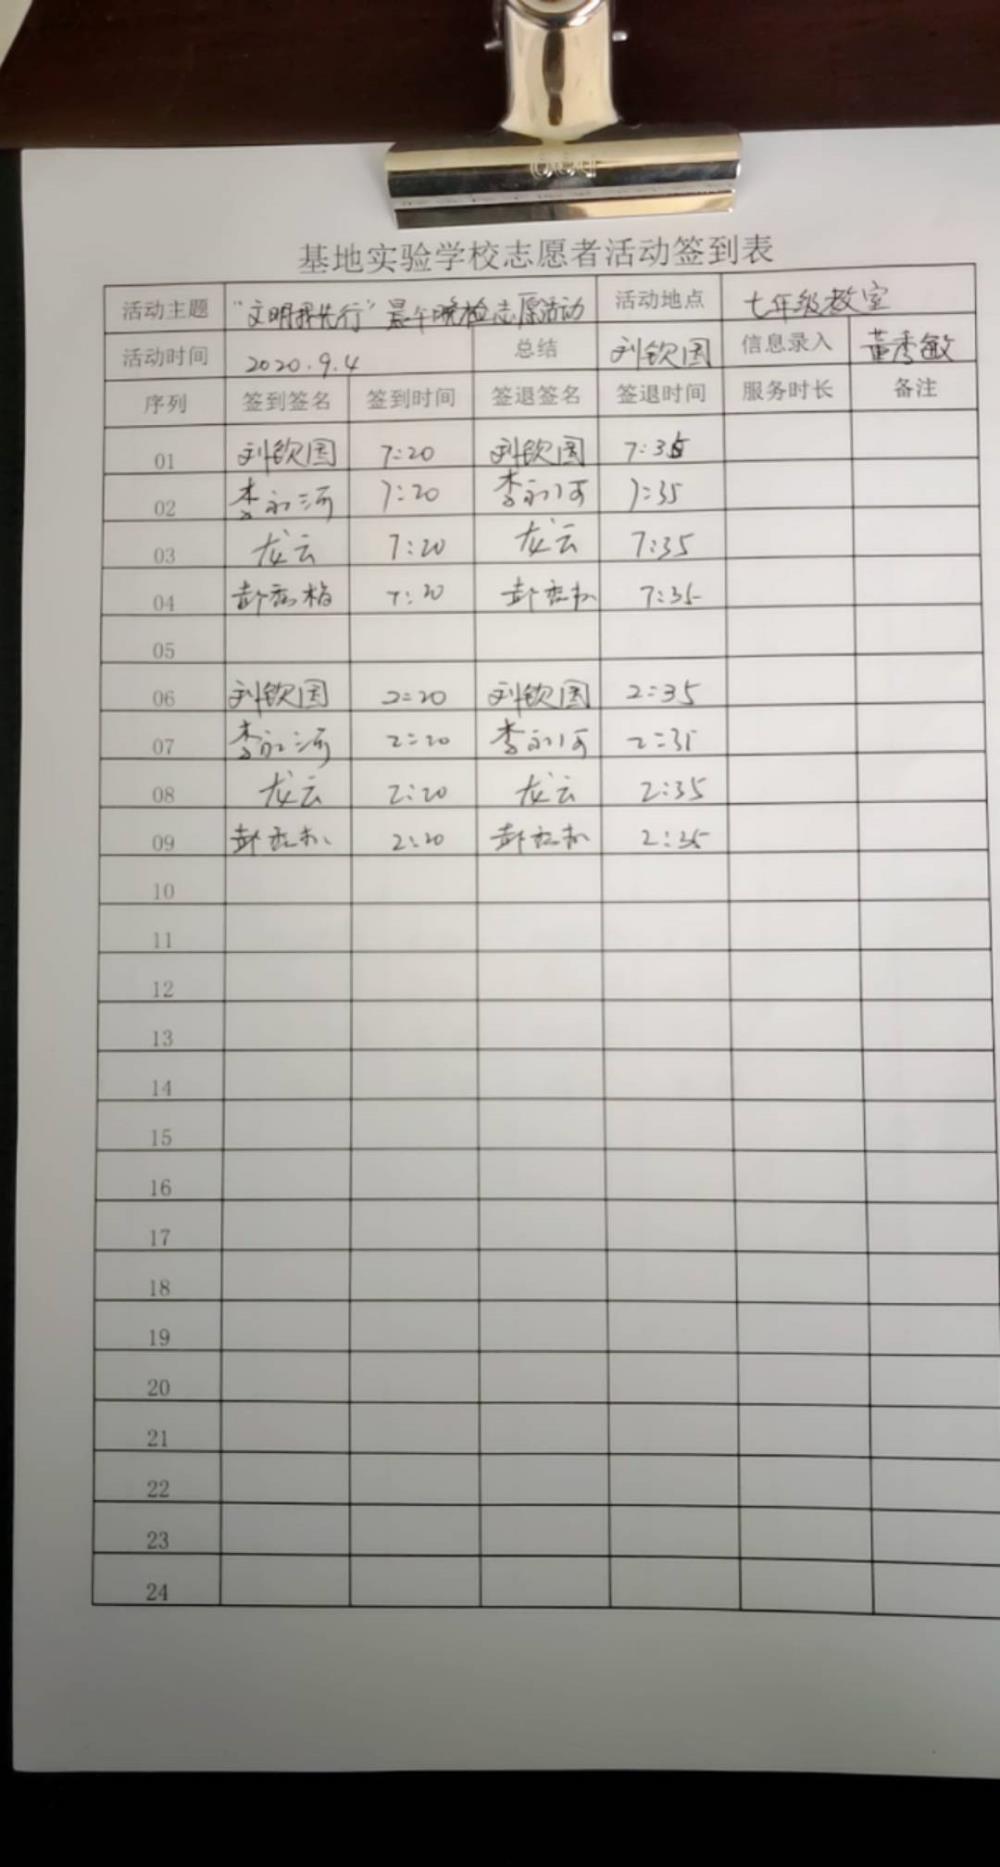 基地实验学校志愿者活动签到表
活动主题 “文明我先行”晨午晚检志愿活动 活动地点 七年级教室
活动时间 2020.9.4 总结 刘钦国 信息录入 董秀敏
序列 签到签名 签到时间 签退签名 签退时间 服务时长 备注
01 刘钦国 7:20 刘钦国 7:35
02 李永河 7:20 李永河 7:35
03 龙云 7:20 龙云 7:35
04 7:20 7:35
05
06 刘钦国 2:20 刘钦国 2:35
07 李永河 2:20 李永河 2:35
08 龙云 2:20 龙云 2:35
09 2:20 2:35
10
11
12
13
14
15
16
17
18
19
20
21
22
23
24